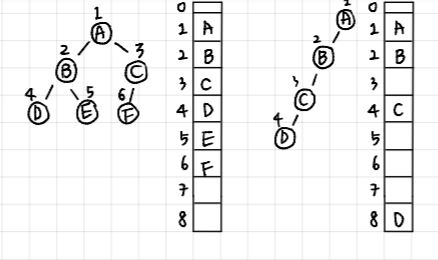 1
A
2 3
B C
4 5 6
D E F
0
1 A
2 B
3 C
4 D
5 E
6 F
7
8
1
A
2
B
3
C
4
D
0
1 A
2 B
3
4 C
5
6
7
8 D